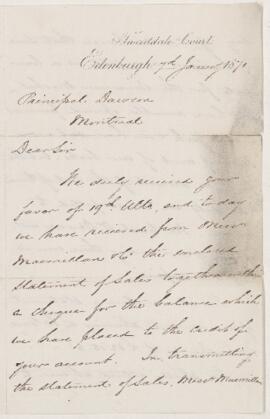 Tweeddale Court
Edinburgh 7th January 1871
Principal Dawson
Montreal
Dear Sir
We duly received your
favor of 19th Ulto, and to day
we have received from Messrs
Macmillan & Co the enclosed
statement of Sales together with
a cheque for the balance which
we have placed to the credit of
your account. In transmitting
the statement of Sales, Messrs Macmillan